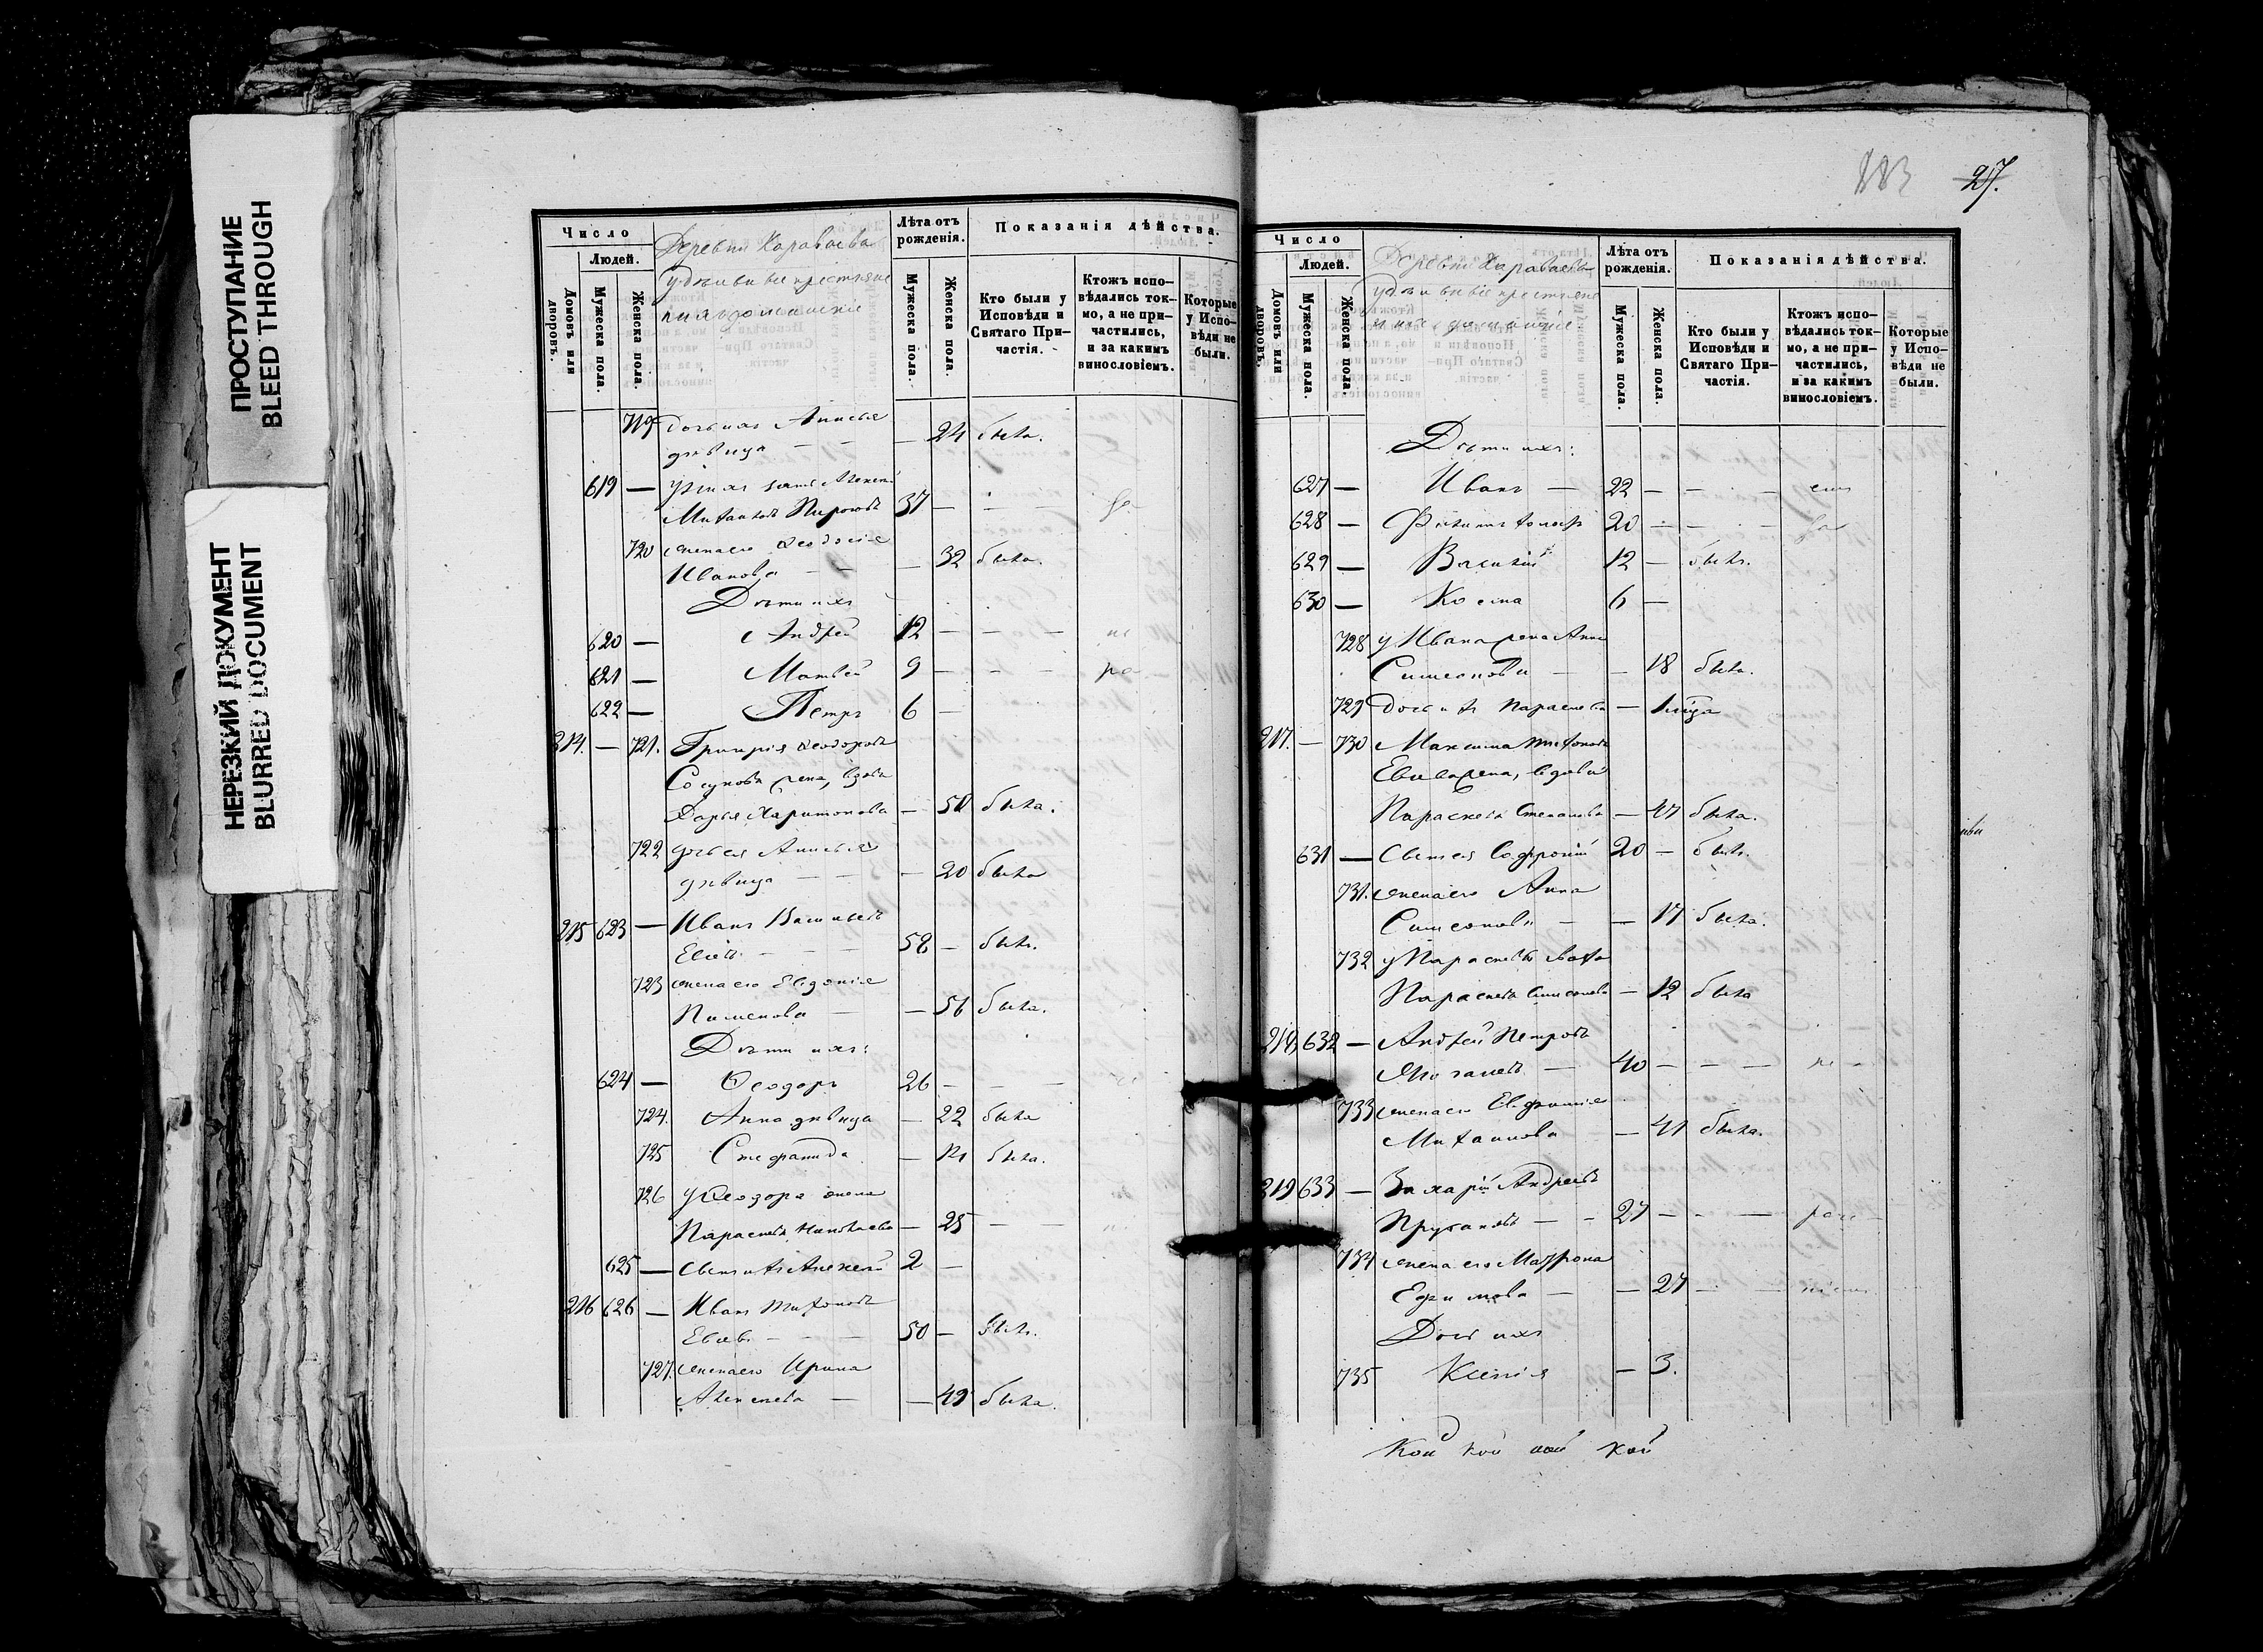 ПРОСТУПАНИЕ
BLEED THROUGH
НЕРЕЗКИЙ ДОКУМЕНТ
BLURRED DOCUMENT
Число
Людей.
Домовъ или дворовъ.
Мужеска пола.
Женска пола.
Деревни Караваева
удѣльные крестьяне
Лѣта отъ рожденія.
Мужеска пола.
Женска пола.
Показанія дѣйства.
Кто были у Исповѣди и Святаго Причастія.
Ктожъ исповѣдались токмо, а не причастились, и за какимъ винословіемъ.
Которые у Исповѣди не были.
719 дочь ихъ Анисья
дѣвица — 24 была.
619 — у нихъ зять Алексѣй
Михайловъ 37 —
720 жена его Ѳеодосія
Иванова — 32 была.
Дѣти ихъ
620 — Андрей 12 — — —
621 — Матвей 9 — —
622 — Петръ 6 —
214. — 721. Григорія Ѳеодорова
жена, вдова
Дарья Харитонова — 50 была.
722 дочь ея Анисья
дѣвица — — — 20 была
215 623 — Иванъ Васильевъ
58 — былъ.
723 жена его Евдокія
Пименова — — 56 была.
Дѣти ихъ:
624 — Ѳеодоръ 26 — — —
724. Анна дѣвица — 22 была
725 Стефанида — была.
726 у Ѳеодора жена
Параскева Николаева — 25 — —
625 — Сынъ ихъ Алексей 2 —
216 626 — Иванъ Тихоновъ
50 — былъ.
727. жена его Ирина
Алексеева — — 49 была.
883 27.
Число
Людей.
Домовъ или дворовъ.
Мужеска пола.
Женска пола.
Деревни Караваева
удѣльные крестьяне
Лѣта отъ рожденія.
Мужеска пола.
Женска пола.
Показанія дѣйства.
Кто были у Исповѣди и Святаго Причастія.
Ктожъ исповѣдались токмо, а не причастились, и за какимъ винословіемъ.
Которые у Исповѣди не были.
Дѣти ихъ:
627 — Иванъ — 22 — — —
628 — Филиппъ 20 — — —
629 — Василій 12 — былъ.
630 — Косма 6 —
728 у Ивана жена Анна
Симеонова — — 18 была.
729 дочь ихъ Параскева — 1
217. — 730 Максима Тихонова
жена, вдова
Параскева Степанова — 47 была.
631 — Сынъ ея Софроній 20 — былъ.
731. жена его Анна
Симеонова — — 17 была.
732 у Параскевы
Параскева Симеонова — 12 была
218. 632 — Андрей Петровъ
— 40 — — —
733 жена его Евфимія
Михаилова — 41 была.
219 633 — Захарій Андреевъ
— — 27 — — —
734 жена его Матрона
Ефимова — — 27 — —
Дочь ихъ
735 Ксенія — 3.
Кои кои кои кои